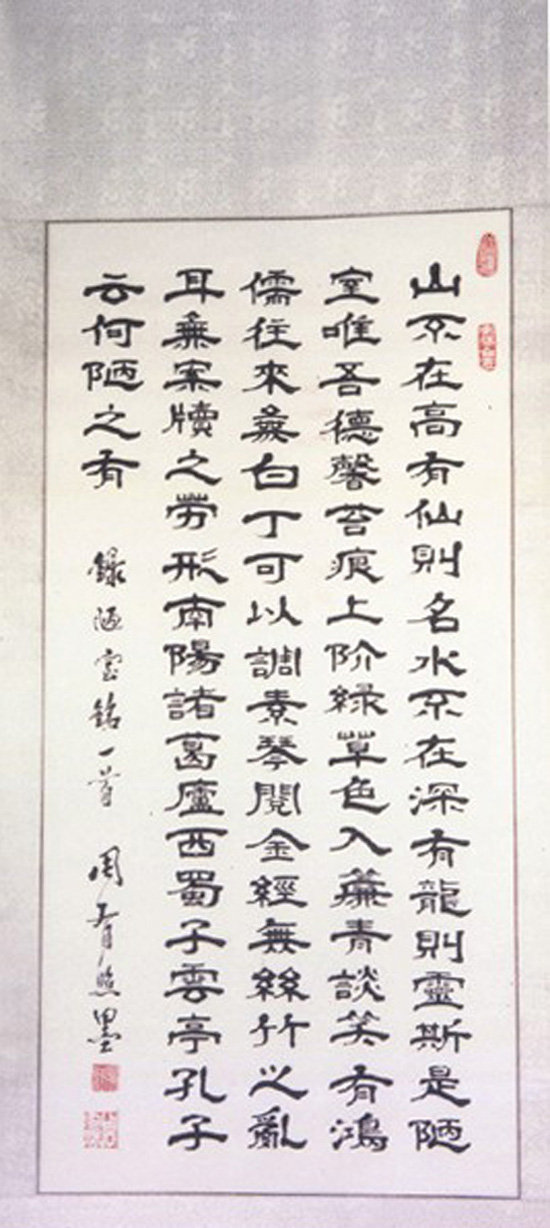 山不在高有仙則名水不在深有龍則靈斯是陋
室唯吾德馨苔痕上阶綠草色入簾青談笑有鴻
儒往來無白丁可以調素琴閱金經無絲竹之亂
耳無案牘之勞形南陽諸葛廬西蜀子雲亭孔子
云何陋之有 錄陋室銘一首 周 墨